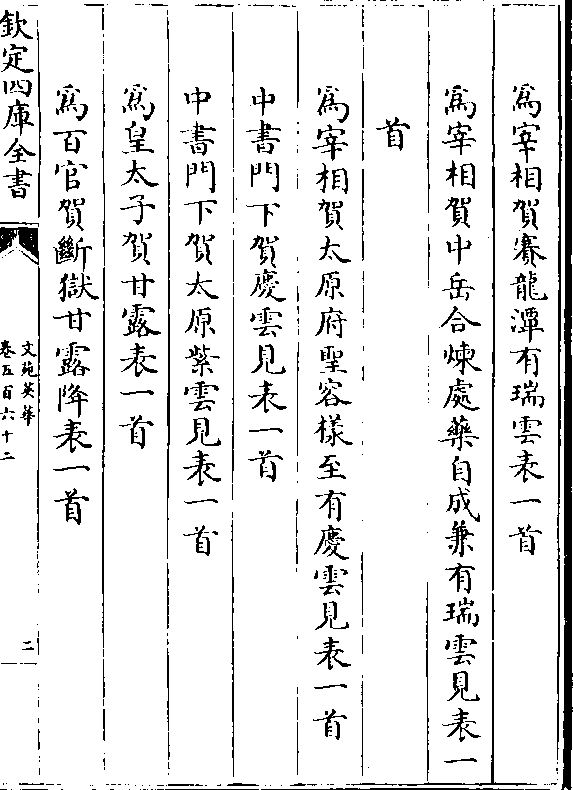 爲宰相賀賽龍潭有瑞雲表一首
爲宰相賀中岳合煉處藥自成兼有瑞雲見表一
首
爲宰相賀太原府聖容樣至有慶雲見表一首
中書門下賀慶雲見表一首
中書門下賀太原紫雲見表一首
爲皇太子賀甘露表一首
爲百官賀斷獄甘露降表一首
欽定四庫全書
文苑英華
卷五百六十二
二